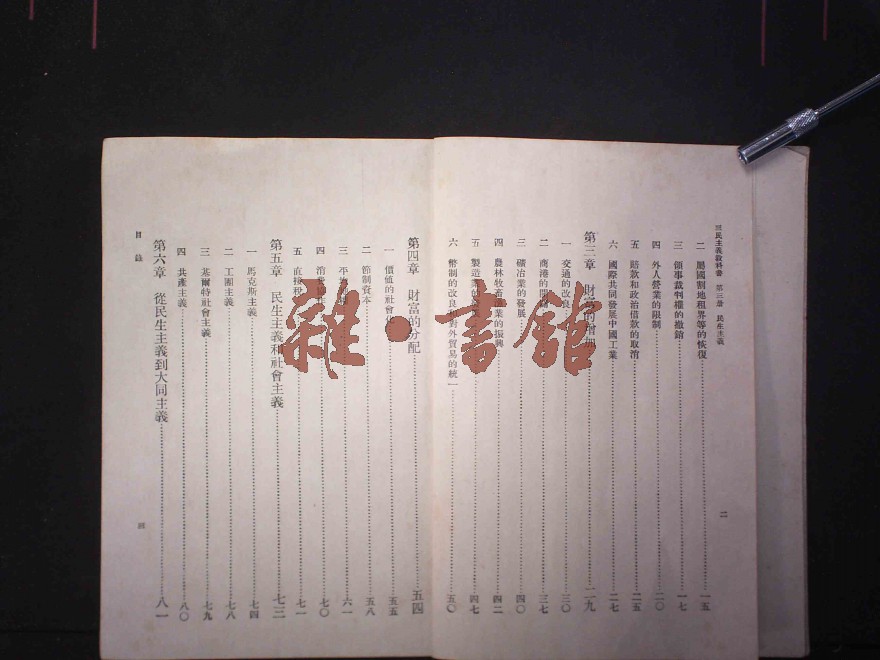 三民主義教科書 第三册 民生主義
二
二 屬國割地租界等的恢復 一五
三 領事裁判權的撤銷 一七
四 外人營業的限制 二〇
五 賠款和政治借款的取消 二五
六 國際共同發展中國工業 二七
第三章 財富的 二九
一 交通的改良 三〇
二 商港的開 三七
三 礦冶業的發展 四〇
四 農林牧畜 業的振興 四二
五 製造業的 四七
六 幣制的改良和對外貿易的統一 五〇
第四章 財富的分配 五四
一 價值的社會化 五五
二 節制資本 五八
三 平均 六一
四 消費 七〇
五 直接稅 七一
第五章 民生主義和社會主義 七三
一 馬克斯主義 七四
二 工團主義 七八
三 基爾特社會主義 七九
四 共產主義 八〇
第六章 從民生主義到大同主義 八一
目錄
雜·書館